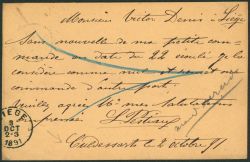 Monsieur Victor Denis - Liège
Sans nouvelle de ma petite com-
mande du 22 écoulé je la
considère comme nulle et
commande d'autre part.
Veuillez agréer Mr mes Salutations
Culdessarts le 2 octobre 91
LIEGE
3
OCT
2-3
1891